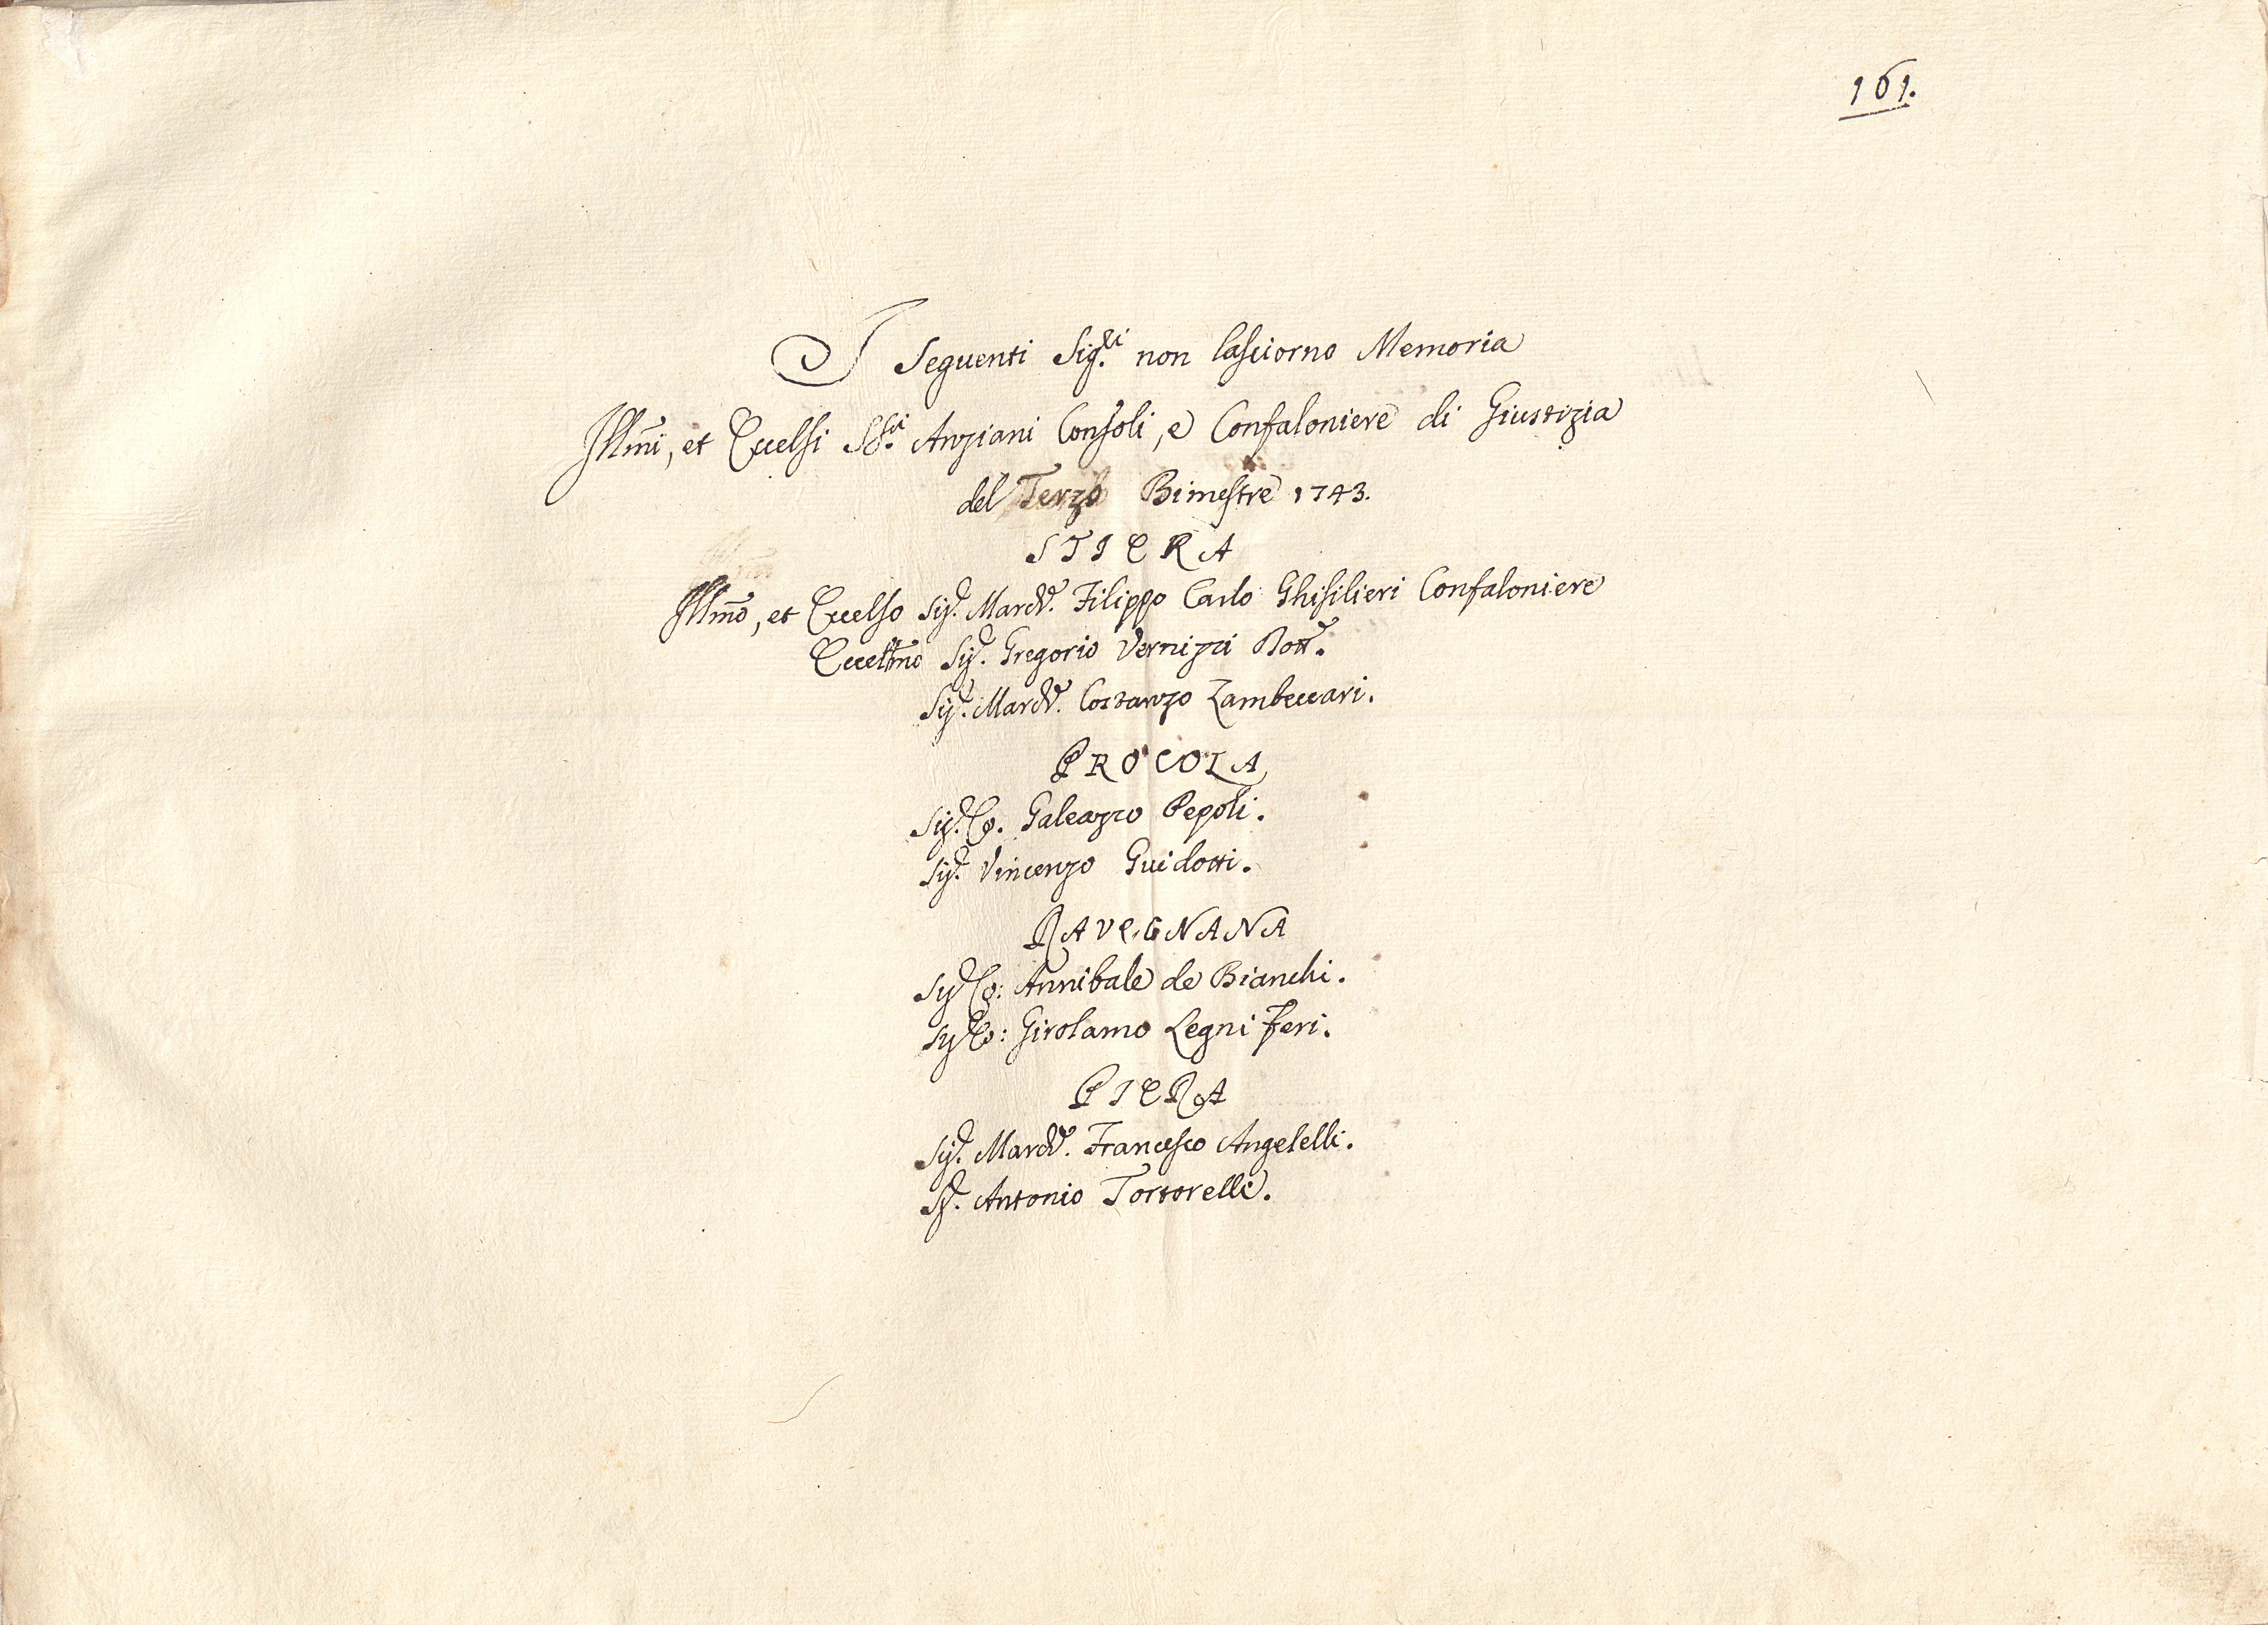 161.
I Seguenti Sig.ri non lasciorno Memoria
Illmi, et Eccelsi SS.ri Anziani Consoli, e Confaloniere di Giustizia
del Terzo Bimestre 1743.
STIERA
Illmo, et Eccelso Sig.r March.e Filippo Carlo Ghisilieri Confaloniere
Eccellmo Sig.r Gregorio Vernizzi Dott.e
Sig.r March.e Costanzo Zambeccari.
PROCOLA
Sig.r Co. Galeazzo Pepoli.
Sig.r Vincenzo Guidotti.
RAVEGNANA
Sig.r Co: Annibale de Bianchi.
Sig.r Co: Girolamo Legni Feri.
PIERA
Sig.r March.e Francesco Angelelli.
S.r Antonio Tortorelli.